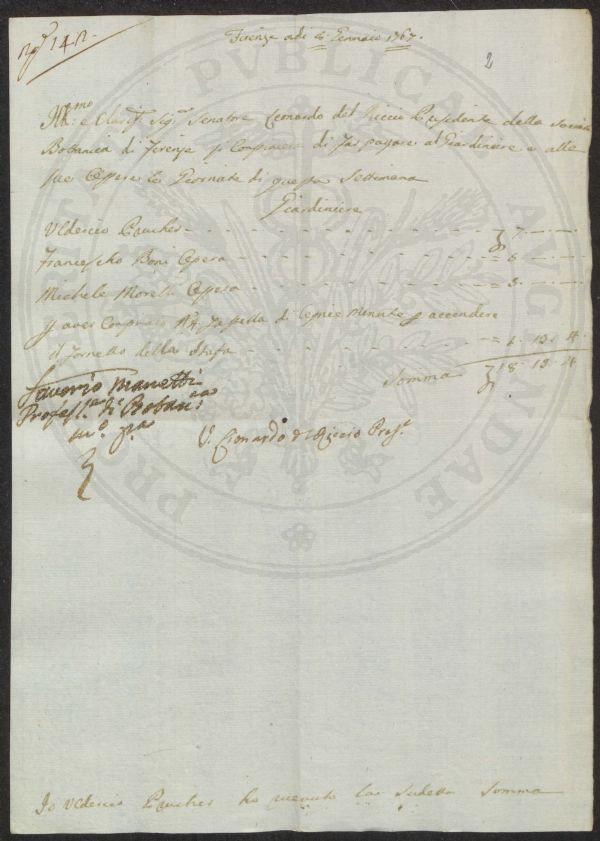 Firenze adi Gennaio 1767.
2
Ill:mo e Claris: Sig: Senatore Leonardo del Riccio Presidente della Società
Botanica di Firenze si Compiacerà di far pagare al Giardiniere e alle
sue Opere le Giornate di questa Settimana
Giardiniere
Ulderico Prucher
7.
Francescho Boni Opera
Michele Morelli Opera
5.
aver Comprato di Legnie Minute p accendere
il Fornello della Stufa
13. 4
Somma 18. 13. 4
Saverio Manetti
Profess.re di Botan.ca
m.o p.a
V. Lionardo d Riccio Pres.e
Io Ulderico Prucher ho riceuto la Sudetta Somma
PUBLICAE